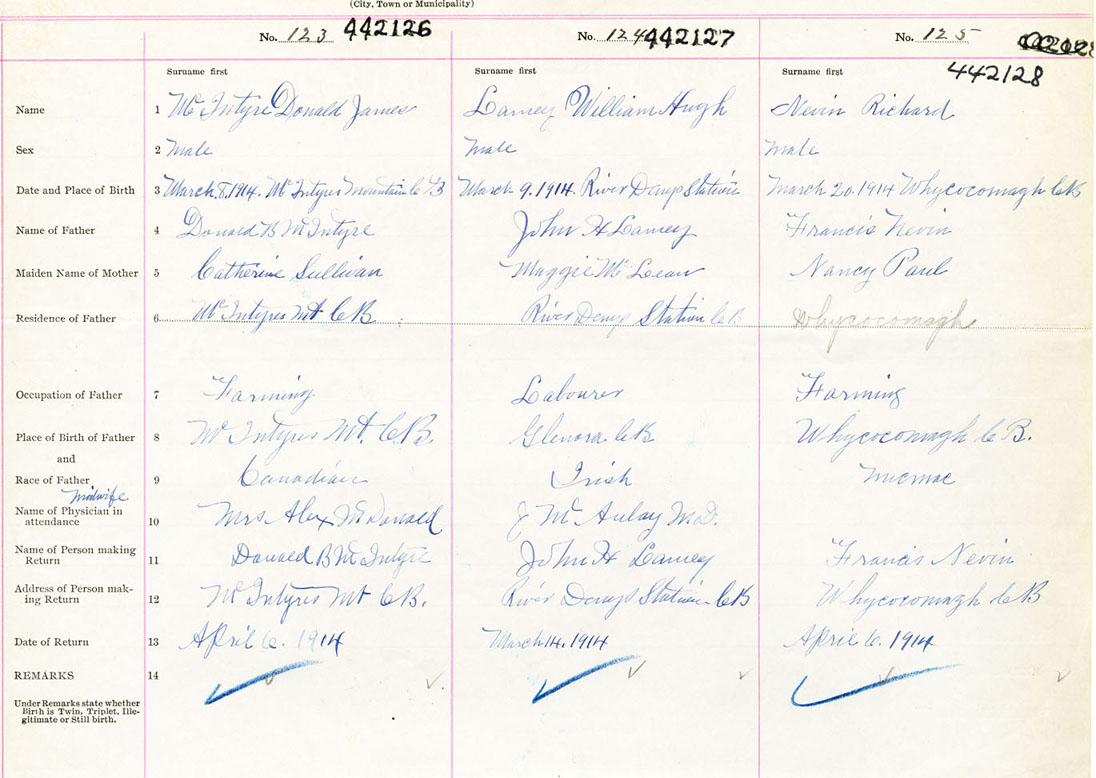 (City, Town or Municipality)
No. 123 442126 No. 124 442127 No. 125
442128
Surname first Surname first Surname first
Name 1 McIntyre Donald James Lamey William Hugh Nevin Richard
Sex 2 Male Male Male
Date and Place of Birth 3 March 8, 1914. McIntyres Mountain C.B March 9. 1914. River Denys Station March 20. 1914 Whycocomagh CB
Name of Father 4 Donald B McIntyre John H Lamey Francis Nevin
Maiden Name of Mother 5 Catherine Sullivan Maggie McLean Nancy Paul
Residence of Father 6 McIntyres Mt CB River Denys Station CB Whycocomagh
Occupation of Father 7 Farming Labourer Farming
Place of Birth of Father 8 McIntyres Mt. C.B. Glenora CB Whycocomagh C B.
and
Race of Father 9 Canadian Irish Micmac
Midwife
Name of Physician in
attendance 10 Mrs Alex McDonald J McAulay M.D.
Name of Person making
Return 11 Donald B McIntyre John H Lamey Francis Nevin
Address of Person mak-
ing Return 12 McIntyres Mt CB. River Denys Station CB Whycocomagh CB
Date of Return 13 April 6. 1914 March 14. 1914 April 6. 1914
REMARKS 14
Under Remarks state whether
Birth is Twin, Triplet, Ille-
gitimate or Still birth.